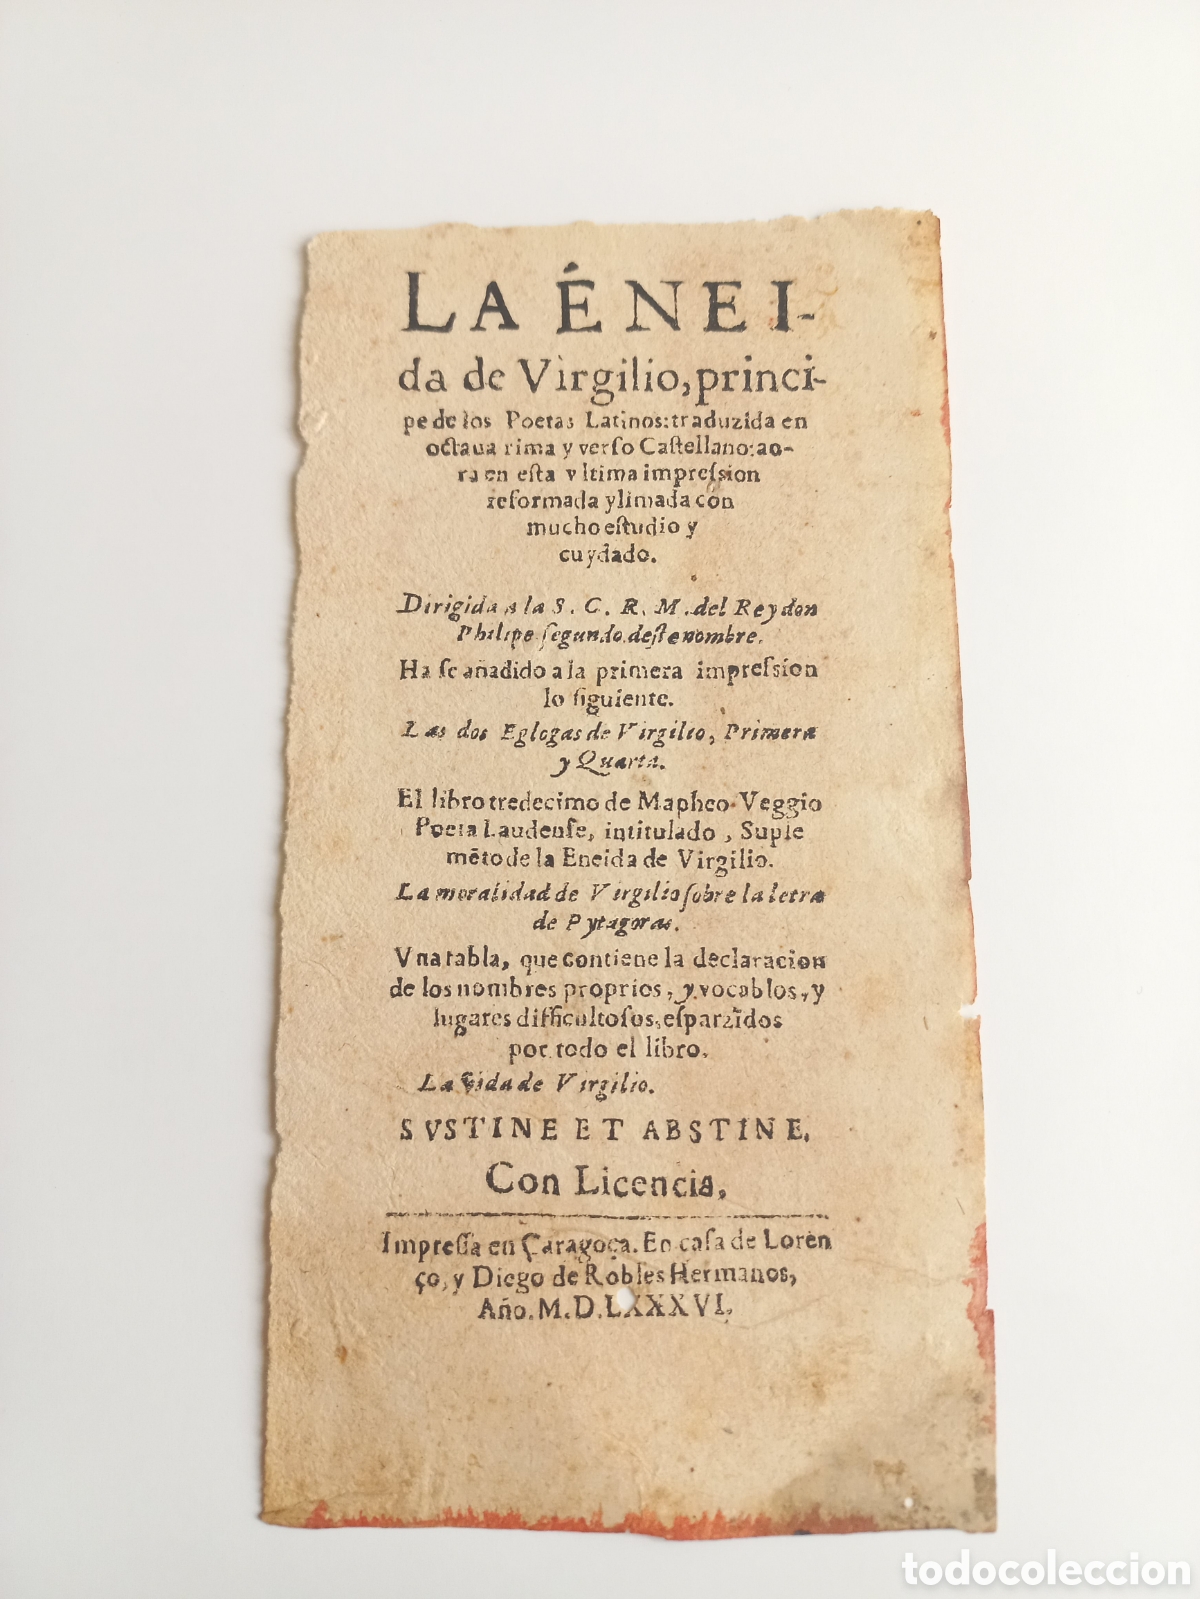 LA ÉNEI-
da de Virgilio, princi-
pe de los Poetas Latinos: traduzida en
octaua rima y verſo Caſtellano: ao-
ra en eſta vltima impreſsion
reformada y limada con
mucho eſtudio y
cuydado.
Dirigida a la S. C. R. M. del Rey don
Philipe ſegundo deſte nombre.
Ha ſe añadido a la primera impreſsion
lo ſiguiente.
Las dos Eglogas de Virgilio, Primera
y Quarta.
El libro tredecimo de Mapheo Veggio
Poeta Laudenſe, intitulado, Suple
mẽto de la Eneida de Virgilio.
La moralidad de Virgilio ſobre la letra
de Pytagoras.
Vna tabla, que contiene la declaracion
de los nombres proprios, y vocablos, y
lugares difficultoſos, eſparzidos
por todo el libro.
La vida de Virgilio.
SVSTINE ET ABSTINE.
Con Licencia.
Impreſſa en Çaragoça. En caſa de Loren
ço, y Diego de Robles Hermanos,
Año. M. D. LXXXVI.
todocoleccion